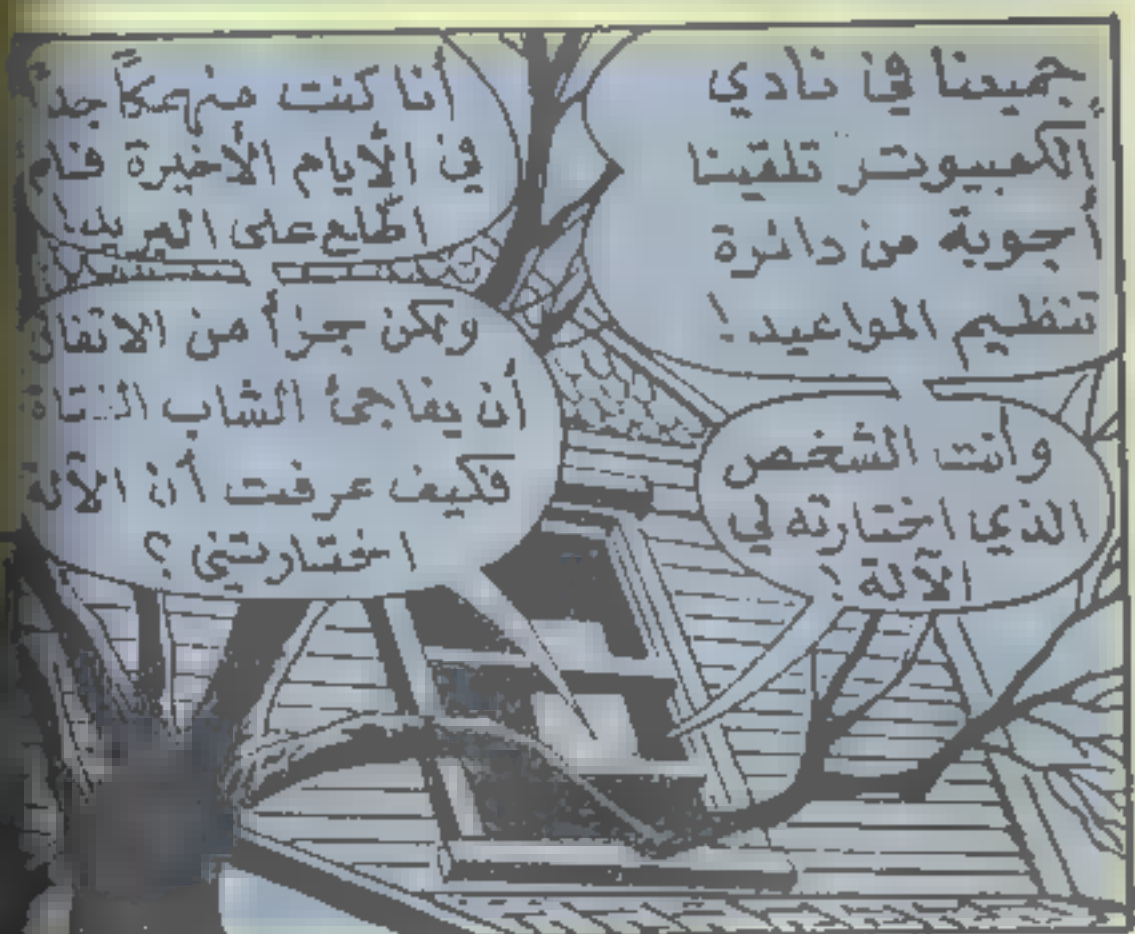 جميعنا في نادي
إلكمبيوتر تلقينا
أجوبة من دائرة
تنظيم المواعيد !
وأنت الشخص
الذي اختارته لي
الآلة !
أنا كنت منهمكاً جد
في الأيام الأخيرة فلم
اطّلع على البريد
ويمكن جزأ من الاتفاق
أن يفاجئ الشاب الفتاة
فكيف عرفت أن الآلة
اختارتني ؟